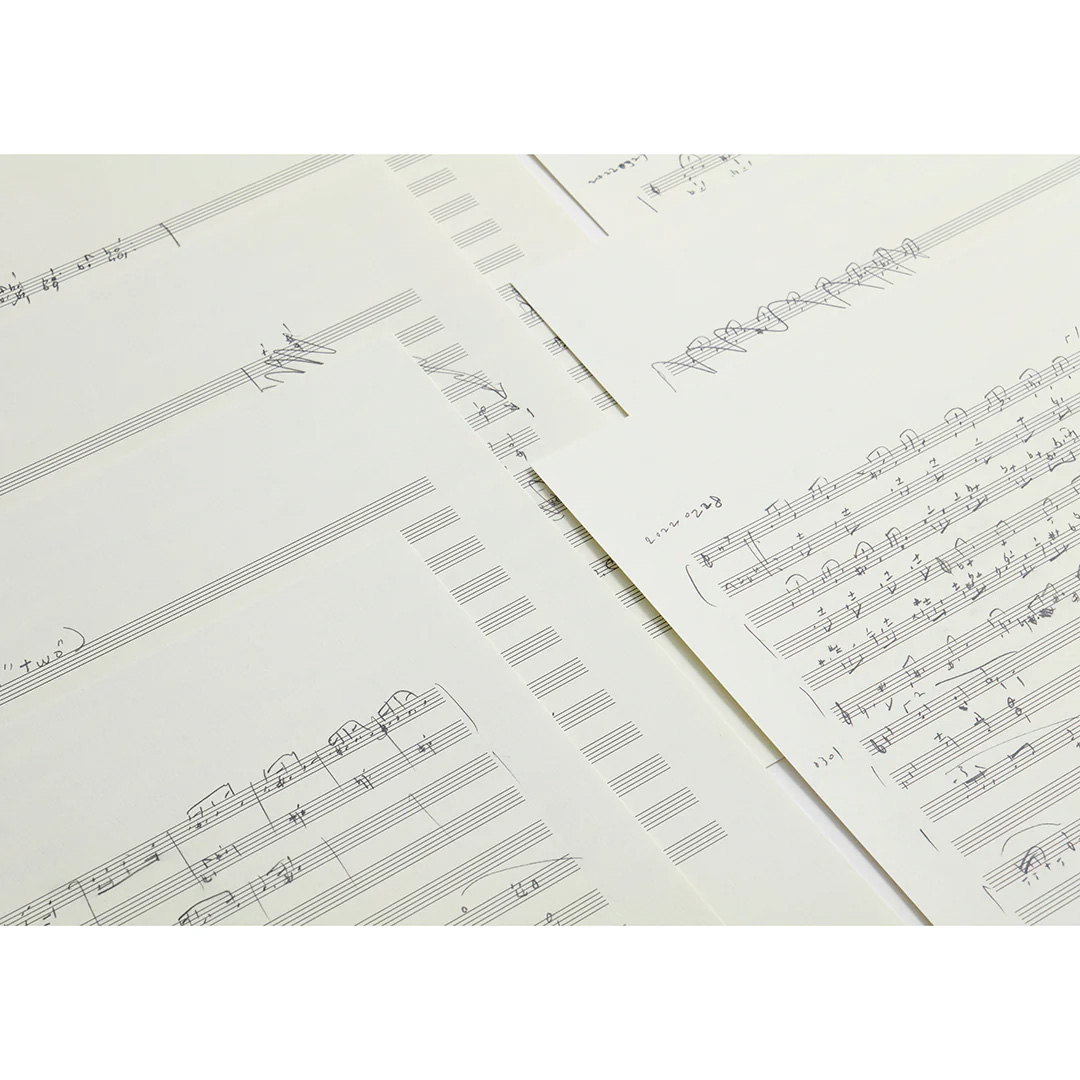 "two")
2022 0228
0301